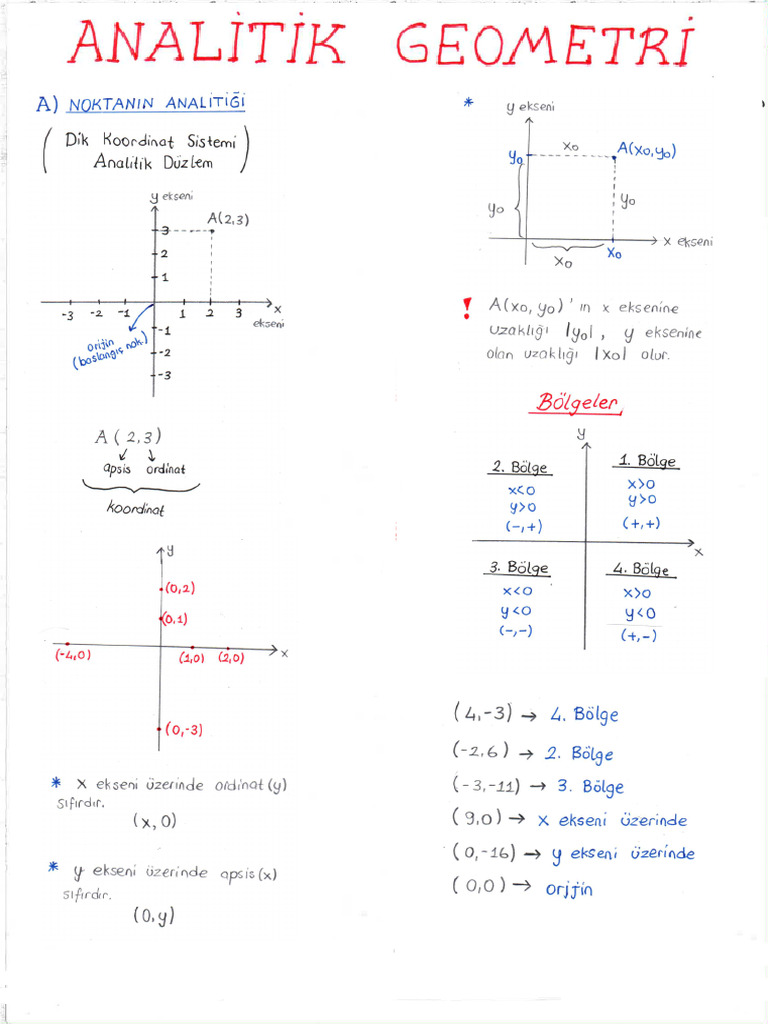 ANALİTİK GEOMETRİ
A) NOKTANIN ANALİTİĞİ
(Dik Koordinat Sistemi
Analitik Düzlem)
y ekseni
A(2,3)
3
2
1
-3 -2 -1 1 2 3 x
ekseni
orijin
(başlangıç nok.)
-1
-2
-3
A(2,3)
apsis ordinat
koordinat
y
(0,2)
(0,1)
(-4,0) (1,0) (2,0) x
(0,-3)
* x ekseni üzerinde ordinat(y)
sıfırdır.
(x,0)
* y ekseni üzerinde apsis(x)
sıfırdır.
(0,y)
* y ekseni
y₀ x₀ A(x₀,y₀)
y₀ y₀
x₀ x ekseni
x₀
! A(x₀,y₀)'ın x eksenine
uzaklığı |y₀|, y eksenine
olan uzaklığı |x₀| olur.
Bölgeler
y
2. Bölge
x<0
y>0
(-,+)
1. Bölge
x>0
y>0
(+,+)
x
3. Bölge
x<0
y<0
(-,-)
4. Bölge
x>0
y<0
(+,-)
(4,-3) → 4. Bölge
(-2,6) → 2. Bölge
(-3,-11) → 3. Bölge
(9,0) → x ekseni üzerinde
(0,-16) → y ekseni üzerinde
(0,0) → orjjin